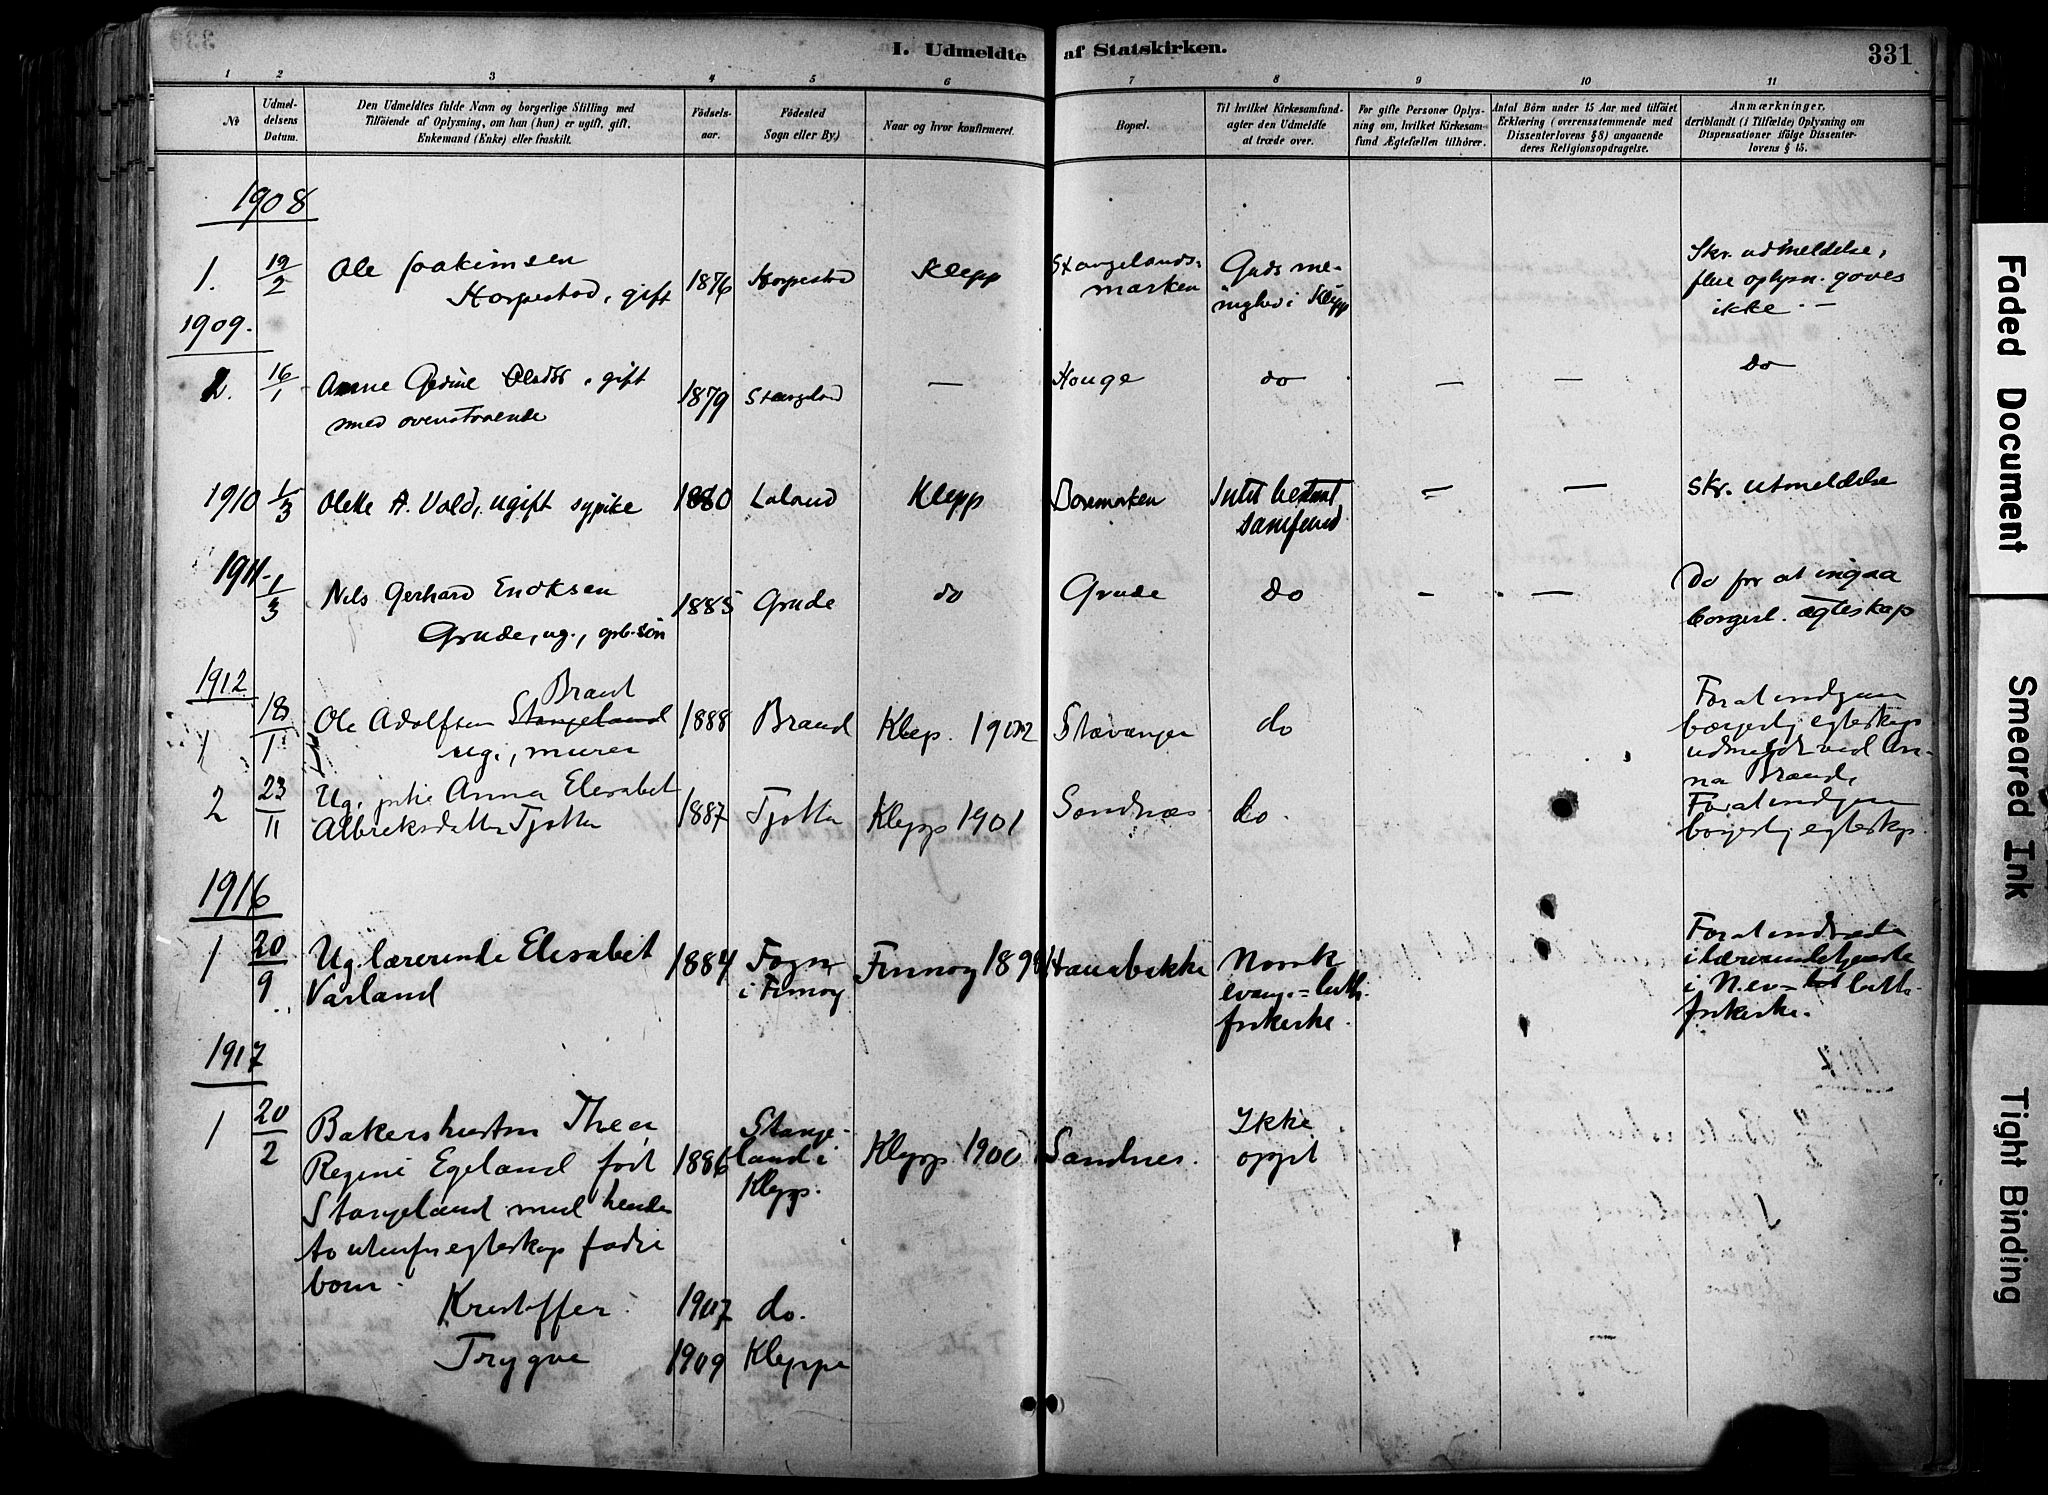 I. Udmeldte af Statskirken.
331
1 2 3 4 5 6 7 8 9 10 11
No
Udmeldelsens Datum.
Den Udmeldtes fulde Navn og borgerlige Stilling med
Tilföiende af Oplysning, om han (hun) er ugift, gift,
Enkemand (Enke) eller fraskilt.
Födselsaar.
Födested
Sogn eller By.)
Naar og hvor konfirmeret.
Bopæl.
Til hvilket Kirkesamfund-
agter den Udmeldte
at træde over.
For gifte Personer Oplys-
ning om, hvilket Kirkesam-
fund Ægtefællen tilhörer.
Antal Börn under 15 Aar med tilföiet
Erklæring (overensstemmende med
Dissenterlovens § 8) angaaende
deres Religionsopdragelse.
Anmærkninger,
deriblandt (i Tilfælde) Oplysning om
Dispensationer ifölge Dissenter-
lovens § 15.
1908
1. 19/2 Ole Joakimsen
Horpestad, gift 1876 Horpestad Klepp
Stangelands-
marken
Guds me-
nighed i Klepp
Skr. udmeldelse,
flere oplysn. gaves
ikke. —
1909.
2. 16/1 Anne Gedine Olsdtr, gift
med ovenstaaende 1879 Stangeland — Houge do — — do
1910 1/3 Olette A. Vold, ugift sypike 1880 Laland Klepp Boremarken Intet bestemt
samfund — — Skr. utmeldelse
1911. 1/3 Nils Gerhard Enoksen
Grude, ug., grb.søn 1885 Grude do Grude do - — Do for at ingaa
borgerl. ægteskap
1912.
1 18/1 Ole Adolfsen Stangeland Braut
ug., murer 1888 Braud Klep. 1902 Stavanger do
For at indgaa
borgerlig egteskap
udmeldt ved An-
na Braud,
2 23/11 Ug. pike Anna Elesabet
Albreksdatter Tjøtta 1887 Tjøtta Klepp 1901 Sandnæs do.
For at indgaa
borgerlig egteskap.
1916
1 20/9 Ug. lærerinde Elesabet
Varland 1884 Fogn
i Finnøy Finnøy 1898 Hanabakke Norsk
evang.=luth.
frikirke.
For at indtræde
i lærerindetjeneste
i N. ev= luth.
frikirke.
1917
1 20/2 Bakershustru Thea
Regine Egeland født
Stangeland med hendes
to utenfor egteskap fødte
born. 1886 Stange-
land i
Klepp. Klepp 1900 Sandnes. Ikke
opgit
Kristoffer 1907 do.
Trygve 1909 Kleppe
Faded Document
Smeared Ink
Tight Binding